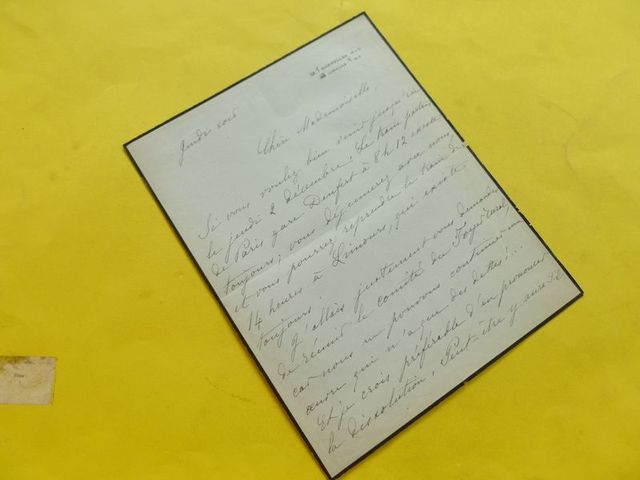 Jeudi soir
Chère Mademoiselle,
Si vous voulez bien venir jusqu'ici
le jeudi 2 décembre! Le train partira
de Paris gare Denfert à 8 h 12 existe
toujours; vous déjeunerez avec nous
et vous pourrez reprendre le train de
14 heures à Limours, qui existe
toujours.
J'allais justement vous demander
de réunir le comité du Foyer
car nous ne pouvons continuer une
œuvre qui n'a que des dettes!...
Et je crois préférable d'en prononcer
la dissolution! Peut être y aura-t-il